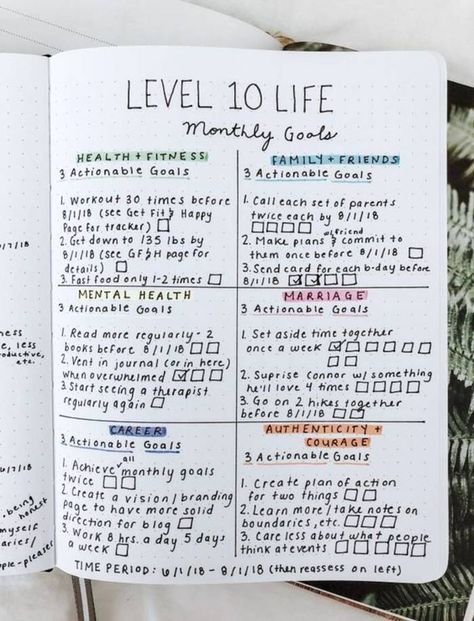 LEVEL 10 LIFE
Monthly Goals
HEALTH + FITNESS
3 Actionable Goals
1. Workout 30 times before
8/1/18 (see Get Fit & Happy
Page for tracker)
2. Get down to 135 lbs by
8/1/18 (see GF&H page for
details)
3. Fast food only 1-2 times
FAMILY + FRIENDS
3 Actionable Goals
1. Call each set of parents
twice each by 8/1/18
w/friend
2. Make plans & commit to
them once before 8/1/18
3. Send card for each b-day before
8/1/18
MENTAL HEALTH
3 Actionable Goals
1. Read more regularly - 2
books before 8/1/18
2. Vent in journal (or in here)
when overwhelmed
3. Start seeing a therapist
regularly again
MARRIAGE
3 Actionable Goals
1. Set aside time together
once a week
2. Suprise Connor w/ something
he'll love 4 times
3. Go on 2 hikes together
before 8/1/18
CAREER
3 Actionable Goals
all
1. Achieve monthly goals
twice
2. Create a vision/branding
page to have more solid
direction for blog
3. Work 8 hrs. a day 5 days
a week
AUTHENTICITY +
COURAGE
3 Actionable Goals
1. Create plan of action
for two things
2. Learn more/take notes on
boundaries, etc.
3. Care less about what people
think at events
TIME PERIOD: 6/1/18 - 8/1/18 (then reassess on left)
ness
e, less
oductive,
etc.
being
honest
myself
aries/
ple-pleaser